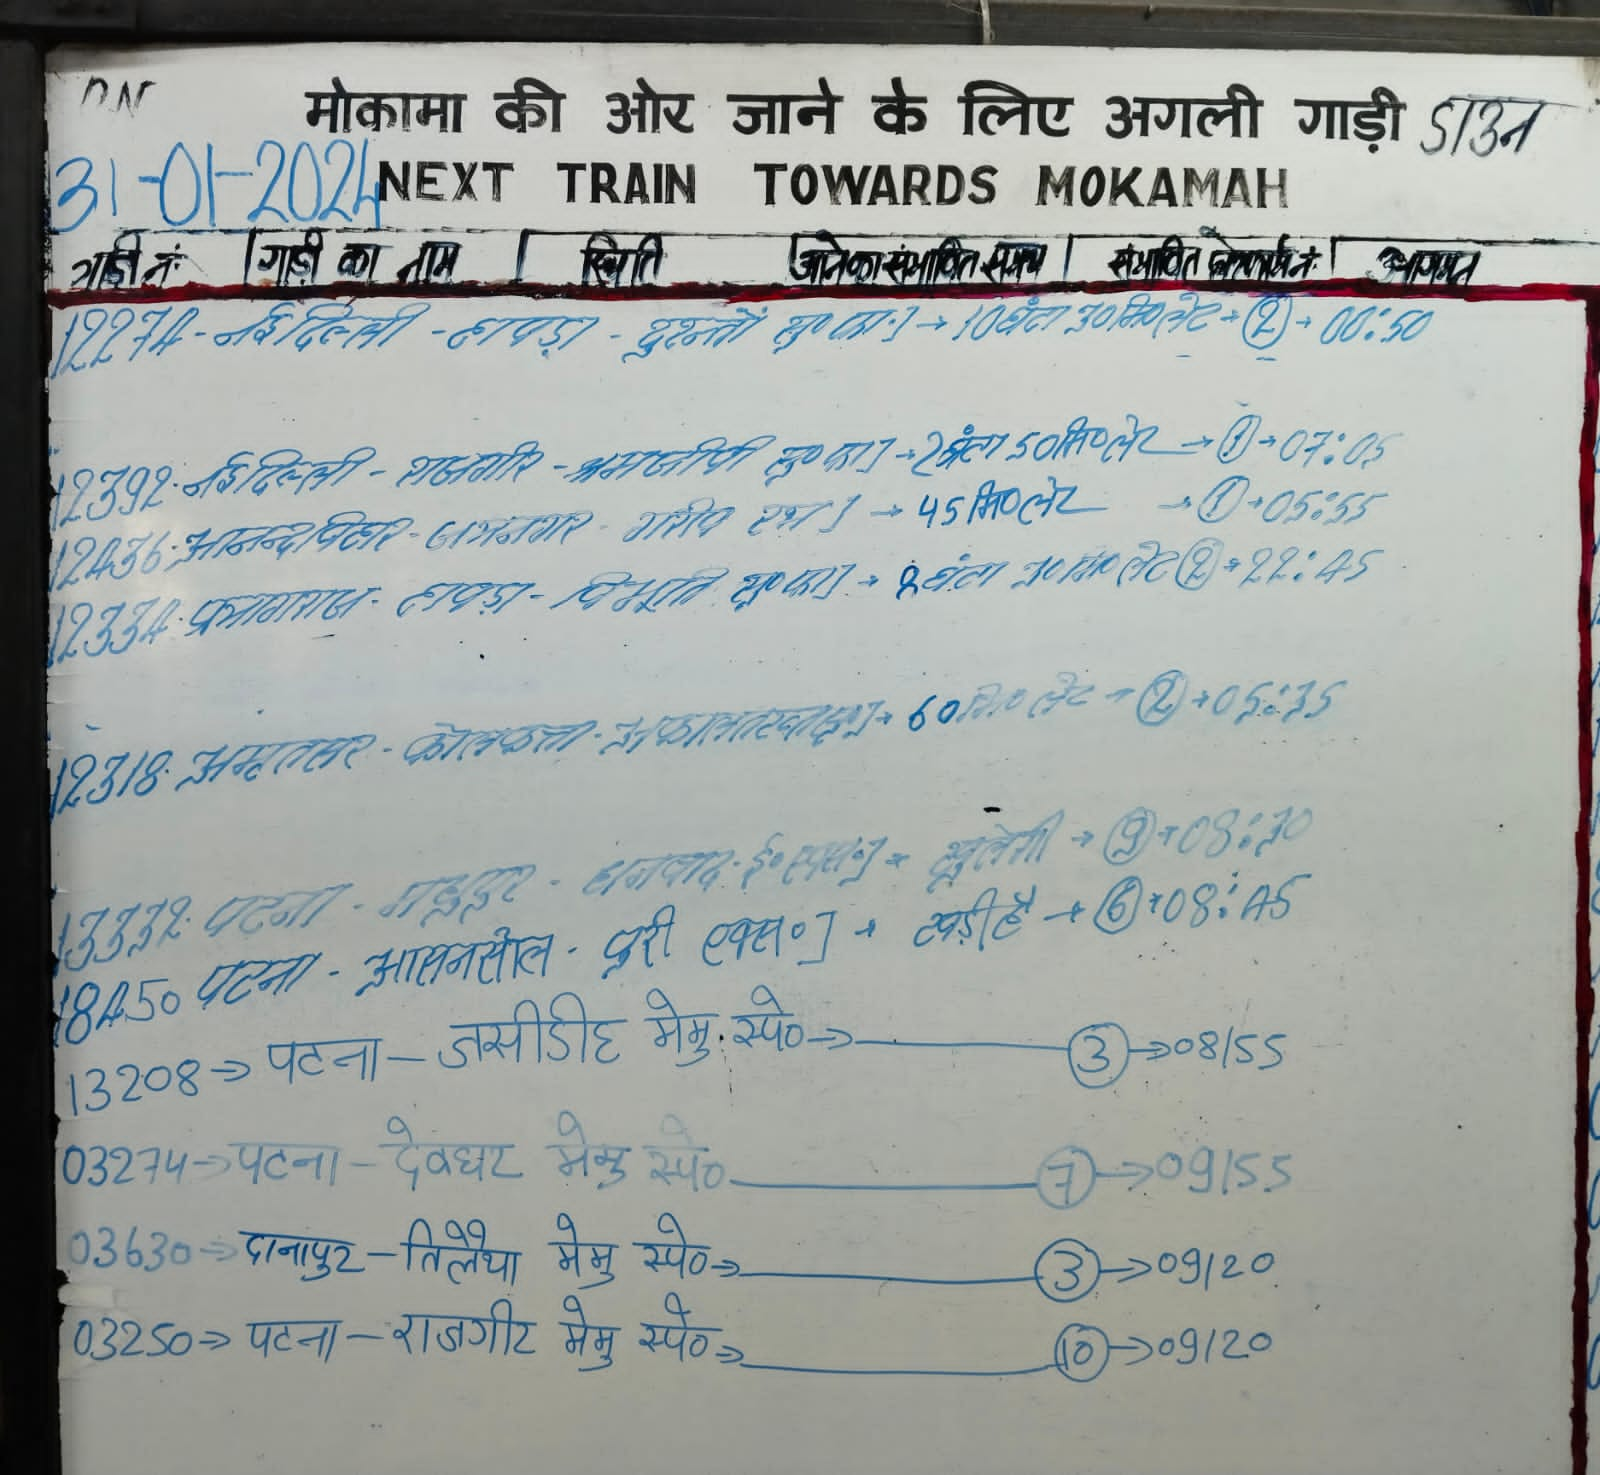 DN
मोकामा की ओर जाने के लिए अगली गाड़ी डाउन
31-01-2024
NEXT TRAIN TOWARDS MOKAMAH
गाड़ी नं॰ गाड़ी का नाम स्थिति जाने का संभावित समय संभावित प्लेटफार्म नं॰ आगमन
12274 - नई दिल्ली - हावड़ा - दुरन्तो सु०फा०] → 10 घंटा 30 मि० लेट → 2 → 00:50
12392 - नई दिल्ली - राजगीर - श्रमजीवी सु०फा०] → 2 घंटा 50 मि० लेट → 1 → 07:05
12436 - आनन्द विहार - जयनगर - गरीब रथ] → 45 मि० लेट → 1 → 05:55
12334 - प्रयागराज - हावड़ा - विभूति सु०फा०] → 8 घंटा 30 मि० लेट 2 → 22:45
12318 - अमृतसर - कोलकत्ता - अकालतख्त → 60 मि० लेट → 2 → 05:35
13332 - पटना - - धनबाद - ई० एक्स०] → खुलेगी → 9 → 08:30
18450 पटना - आसनसोल - पुरी एक्स०] → खड़ी है → 6 → 08:45
13208 → पटना – जसीडीह मेमु. स्पे० → 3 → 08/55
03274 → पटना – देवघर मेमु स्पे० 7 → 09/55
03630 → दानापुर – तिलैया मेमु स्पे० → 3 → 09/20
03250 → पटना – राजगीर मेमु स्पे० → 10 → 09/20